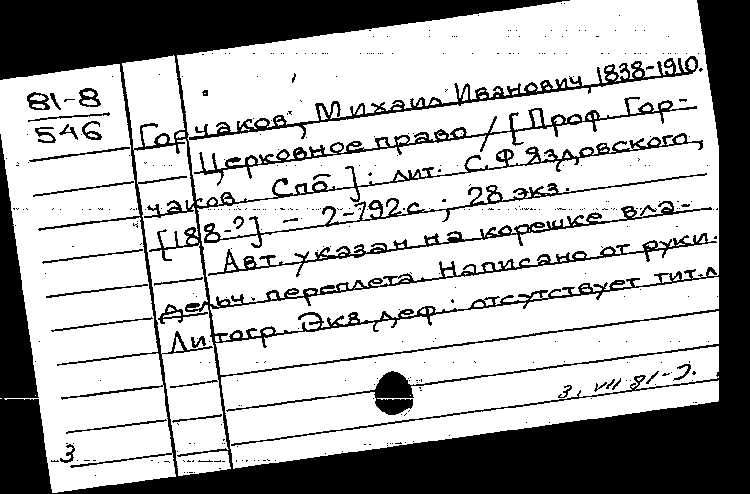 81-8
546
Горчаков, Михаил Иванович, 1838-1910.
Церковное право / [Проф. Гор-
чаков. Спб.]: лит. С.Ф. Яздовского,
[188-?] – 2-792 с.; 28 экз.
Авт. указан на корешке вла-
дельч. переплета. Написано от руки.
Литогр. Экз. деф.: отсутствует тит. л
3. VII 81-
3